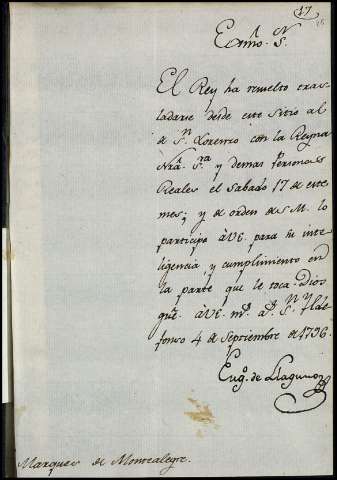 17
Exmo. Sr.
El Rey ha resuelto tras-
ladarse desde este Sitio al
de Sn. Lorenzo con la Reyna
Nra. Sra. y demas Personas
Reales el sabado 17 de este
mes; y de orden de S. M. lo
participo à V.E. para su inte-
ligencia, y cumplimiento en
la parte que le toca. Dios
gue. à V.E. ms. as. Sn. Ylde-
fonso 4 de Septiembre de 1796.
Eugo. de Llaguno
Marques de Montealegre.